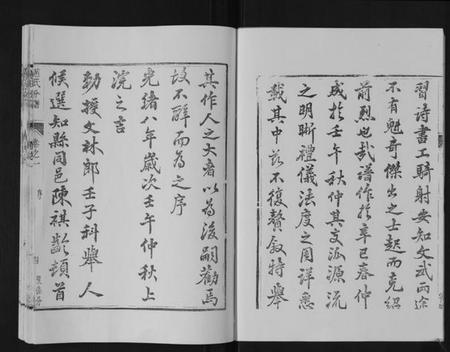 習詩書工騎射安知文武兩途
不有魁奇傑出之士起而克紹
前烈也哉譜作於辛巳春仲
成於壬午秋仲其支派源流
之明晰禮儀法度之周詳悉
載其中茲不復贅敘特舉
其作人之大者以為後嗣勸焉
故不辭而為之序
光緒八年歲次壬午仲秋上
浣之吉
勅授文林郎壬子科舉人
候選知縣同邑陳祺齡頓首
序